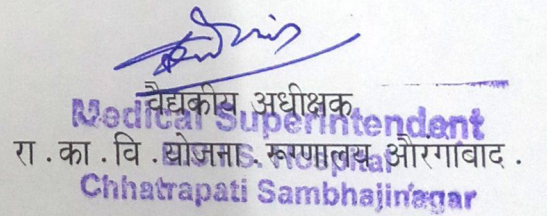 वैद्यकीय अधीक्षक
Medical Superintendent
रा . का . वि . योजना . रूग्णालय औरगांबाद .
Hospital
Chhatrapati Sambhajinagar